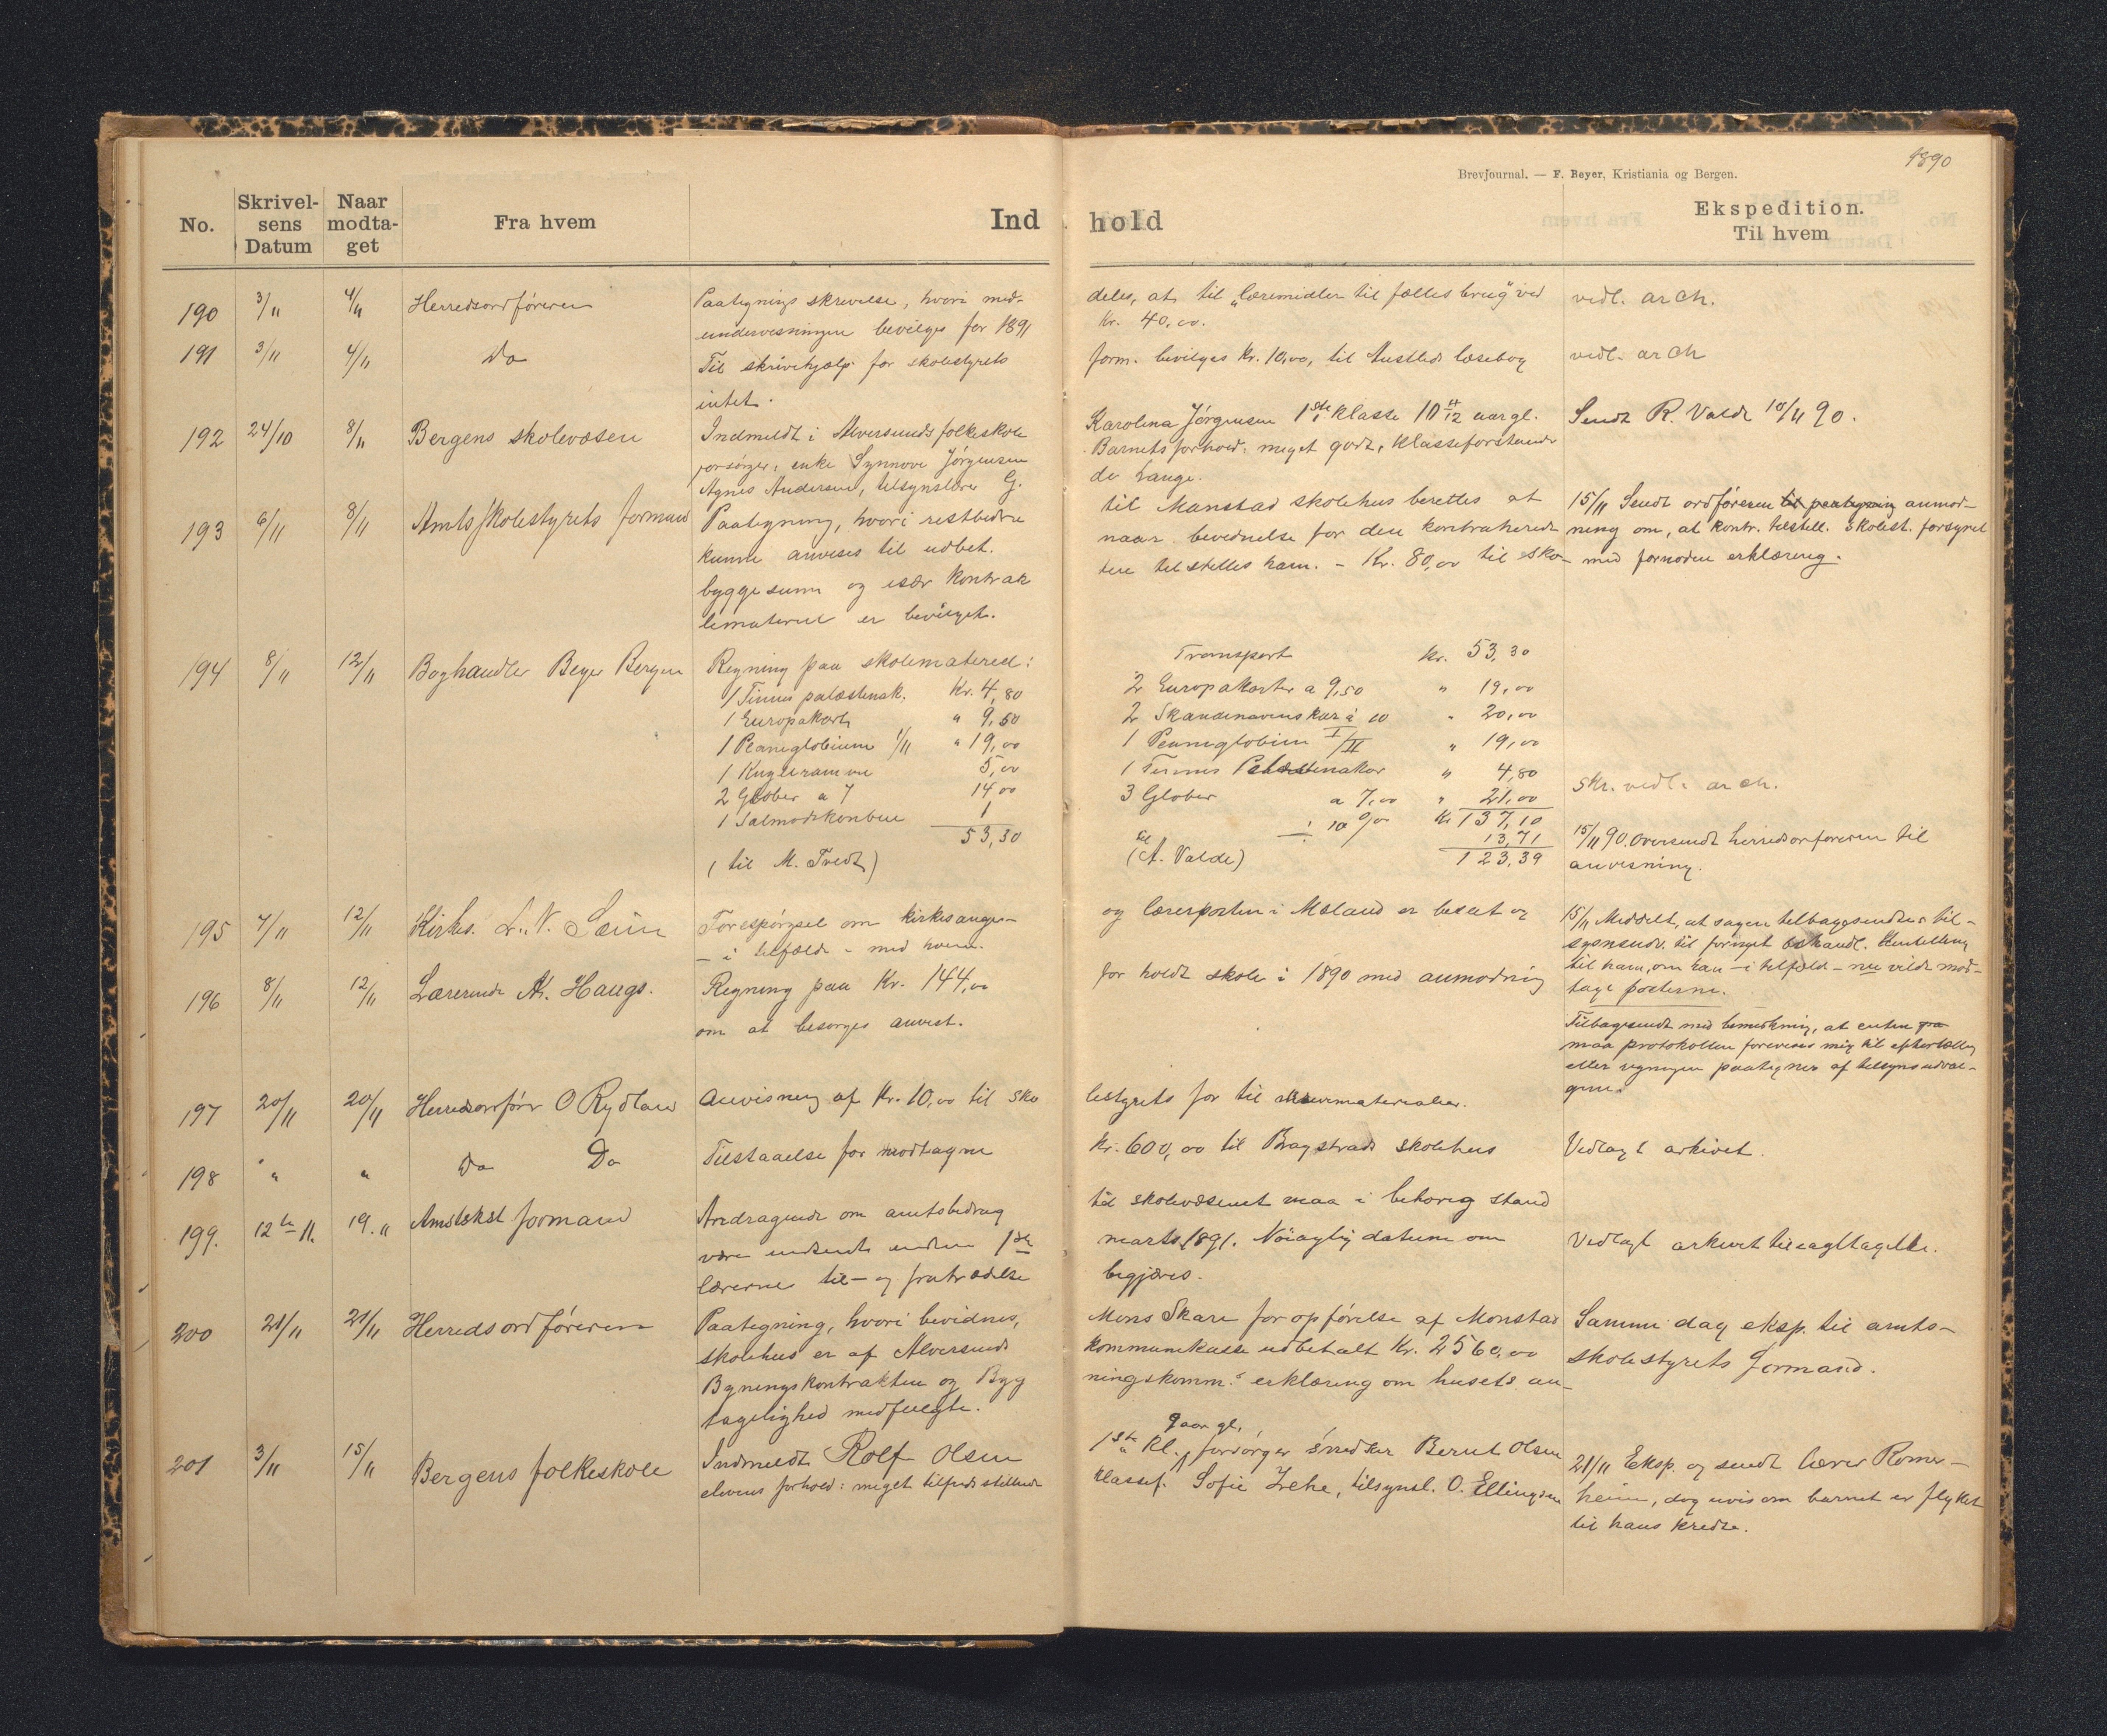 1890
Brevjournal. — F. Beyer, Kristiania og Bergen.
No. Skrivelsens Datum Naar modtaget Fra hvem Indhold Ekspedition. Til hvem
190 3/11 4/11 Herredsordføreren Paategnings skrivelse, hvori med- deles, at til "læremidler til fælles brug" ved vedl. arch.
undervisningen bevilges for 1891 Kr. 40,00.
191 3/11 4/11 Do Til skrivehjælp for skolestyrets form. bevilges Kr. 10,00, til Austlids læsebog vedl. arch
intet.
192 24/10 8/11 Bergens skolevæsen Indmeldt i Alversunds folkeskole Karolina Jørgensen 1ste klasse 10 11/12 aar gl. Sendt R. Valde 10/11 90.
forsørger: enke Synnøve Jørgensen Barnets forhold: meget godt, klasseforstander
Agnes Andersen, tilsynslærer G. de Lange.
193 6/11 8/11 Amtsskolestyrets formand Paategning, hvori restbidra til Manstad skolehus berettes at 15/11 Sendt ordføreren til paategning anmod-
kunne anvises til udbet. naar bevidnelse for den kontraherede ning om, at kontr. tilstill. skolest. forsynet
byggesum og især kontrak ten tilstilles ham. - Kr. 80,00 til sko- med fornøden erklæring.
lemateriel er bevilget.
194 8/11 12/11 Boghandler Beyer Bergen Regning paa skolemateriel:
1 Palæstinak. Kr. 4,80
1 Europakart " 9,50
1 Planiglobium I/II " 19,00
1 Kugleramme 5,00
2 Glober a 7 14,00
1 Salmodikonbue 1
53,30
(til M. Tvedt)
Transport Kr. 53,30
2 Europakarter a 9,50 " 19,00
2 Skandinaviens kar à 10 " 20,00
1 Planiglobium I/II " 19,00
1 Palæstinakar " 4,80
3 Glober a 7,00 " 21,00
÷ 10 % Kr 137,10
13,71
til (A. Valde) 123,39
skr. vedl. arch.
15/11 90. Oversendt herredsordføreren til
anvisning.
195 7/11 12/11 Kirkes. L. N. Forespørgsel om kirkesanger- og lærerposten i Mæland er besat og
- i tilfælde - med hvem.
15/11 Meddelt, at sagen tilbagesendes til-
synsudv. til fornyet behandl. Henstilling
til ham, om han - i tilfæld - nu vilde mod-
tage posterne.
196 8/11 12/11 Lærerinde A. Haugs. Regning paa Kr. 144,00 for holdt skole i 1890 med anmodning
om at besørges anvist.
Tilbagesendt med bemerkning, at enten
maa protokollen forevises mig til eftertælling
eller regningen paategnes af tilsynsudval-
gene.
197 20/11 20/11 Herredsordfører O Rydland Anvisning af Kr. 10,00 til sko lestyrets for til skrivematerialier.
198 " " Do Do Tilstaaelse for modtagne Kr. 600,00 til skolehus Vedlagt arkivet.
199. 12te 11. 19. 11 Amtskst formand Andragende om amtsbidrag til skolevæsenet maa i behørig stand
være indsendt inden 1ste marts 1891. Nøiagtig datum om Vedlagt arkivet til iagttagelse.
lærernes til- og fratrædelse begjæres.
200 21/11 21/11 Herredsordføreren Paategning, hvori bevidnes, Mons Skare for opførelse af Monstad Samme dag eksp. til amts-
skolehus er af Alversunds kommunekasse udbetalt Kr. 2560,00 skolestyrets formand.
Bygningskontrakten og Byg ningskomm.s erklæring om husets an-
tagelighed medfulgte.
201 3/11 15/11 Bergens folkeskole Indmeldt Rolf Olsen 1ste kl., 9 aar gl. forsørger snedker Bernt Olsen 21/11 Eksp. og sendt lærer Romar-
elevens forhold: meget tilfredsstillende klassef. Sofie, tilsynsl. O. Ellingsen heim, dog uvis om barnet er flyttet
til hans kreds.